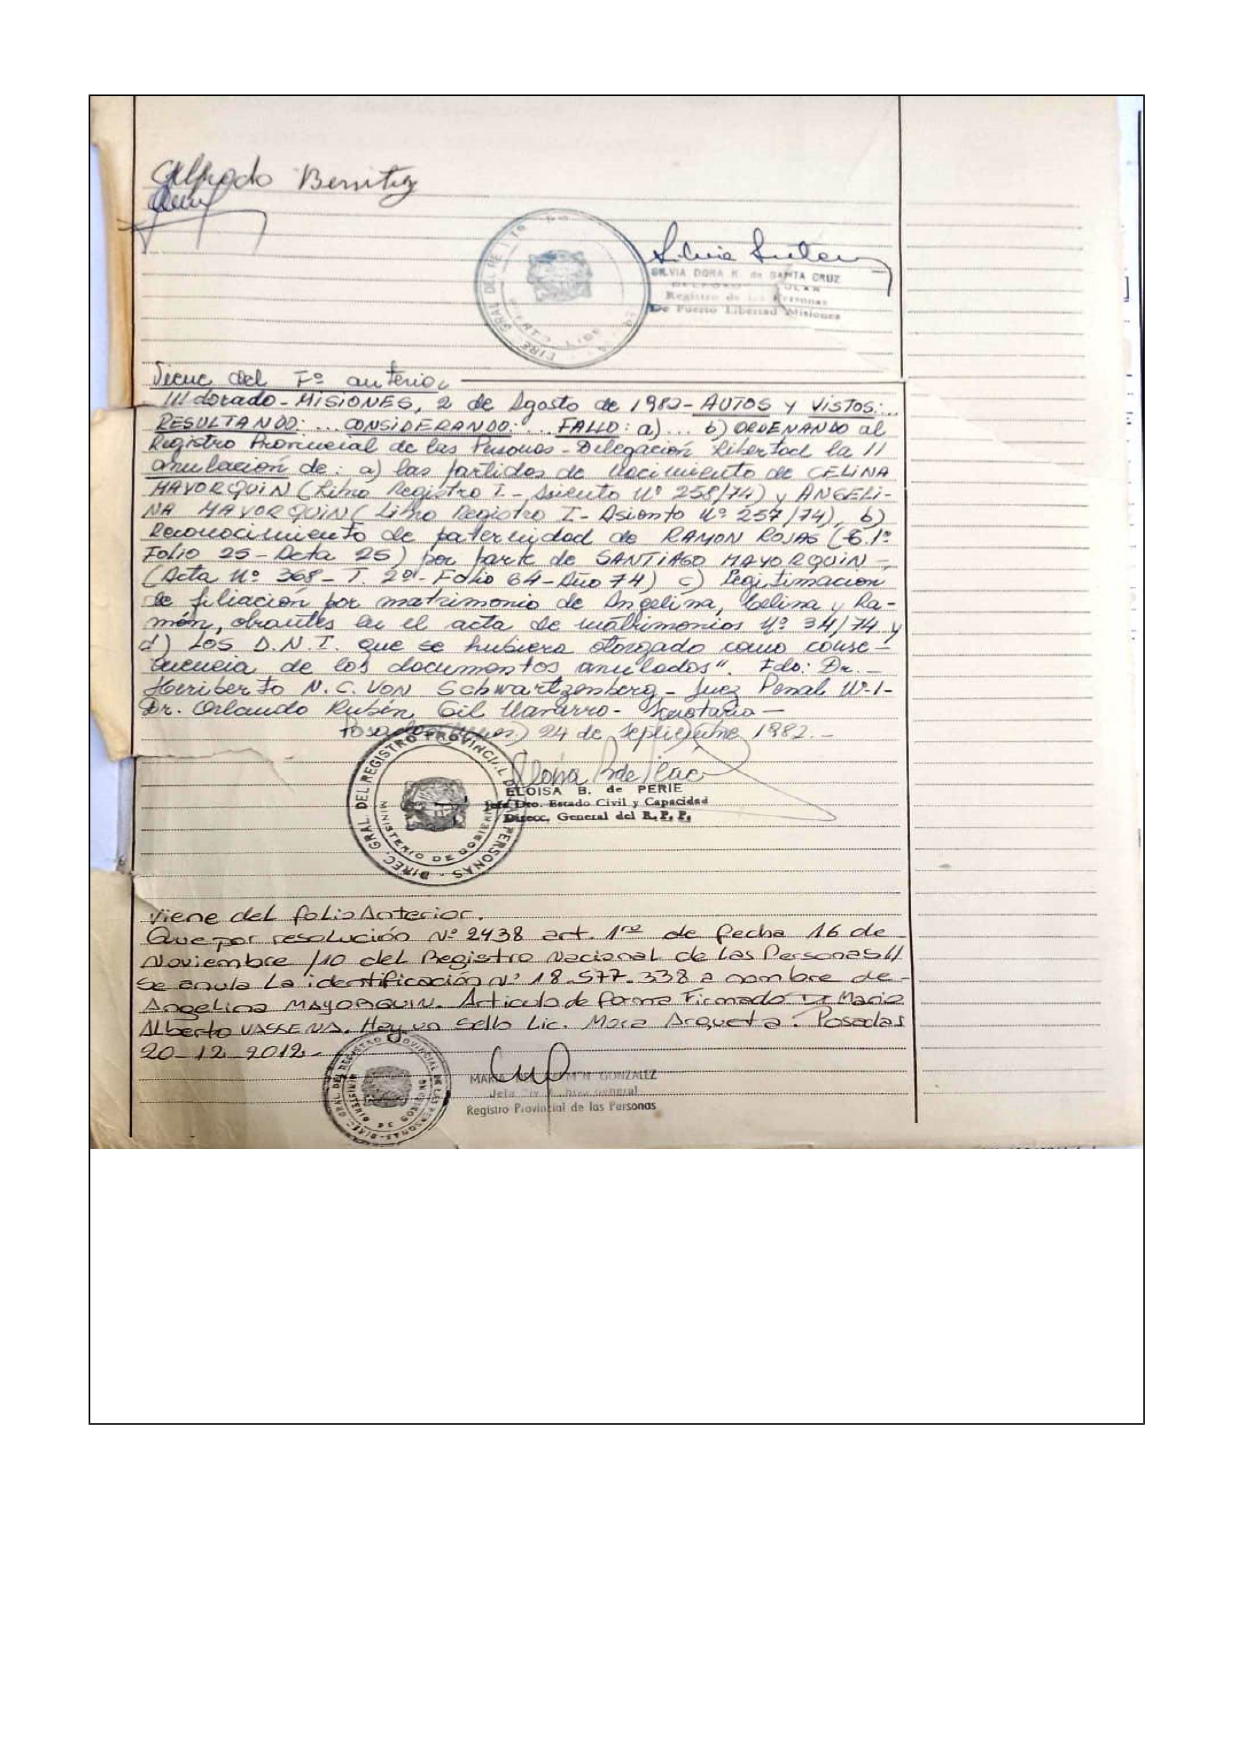 Alfredo Benitez
Silvia Suter
SILVIA DORA K. de SANTA CRUZ
Registro de las Personas
De Puerto Libertad Misiones
Viene del Fº anterior
Eldorado - MISIONES, 2 de Agosto de 1982 - AUTOS y VISTOS:...
RESULTANDO: ... CONSIDERANDO: ... FALLO: a)... b) ORDENANDO al
Registro Provincial de las Personas - Delegación Libertad la //
anulación de: a) las partidas de nacimiento de CELINA
MAYORQUIN (Libro Registro I - Asiento Nº 258/74) y ANGELI-
NA MAYORQUIN (Libro Registro I - Asiento Nº 257/74), b)
Reconocimiento de paternidad de RAMON ROJAS (T. 1º
Folio 25 - Acta 25) por parte de SANTIAGO MAYORQUIN -
(Acta Nº 368 - T 2º - Folio 64 - Año 74) c) Legitimación
de filiación por matrimonio de Angelina, Celina y Ra-
món, obrantes en el acta de matrimonios Nº 34/74 y
d) Los D.N.I. que se hubiera otorgado como conse-
cuencia de los documentos anulados". Fdo: Dr. -
Heriberto N. C. Von Schwartzenberg - Juez Penal Nº 1 -
Dr. Orlando Rubén Gil Navarro - Secretario -
Posadas (Mnes) 24 de septiembre 1982. -
DIREC. GRAL. DEL REGISTRO PROVINCIAL DE LAS PERSONAS
MINISTERIO DE GOBIERNO
ELOISA B. de PERIE
Jefe Dto. Estado Civil y Capacidad
Direcc. General del R. P. P.
Viene del folio Anterior.
Que por resolución Nº 2438 art. 1ro de fecha 16 de
Noviembre /10 del Registro Nacional de Las Personas //
se anula La identificación Nº 18.577.338 a nombre de
Angelina MAYORQUIN. Articulo de forma Firmado Dr Mario
Alberto VASSENA. Hay un sello Lic. Mora Arqueta. Posadas
20-12-2012.-
DIREC. GRAL. DEL REGISTRO PROVINCIAL DE LAS PERSONAS
MINISTERIO DE GOBIERNO
MARIA GONZALEZ
Registro Provincial de las Personas